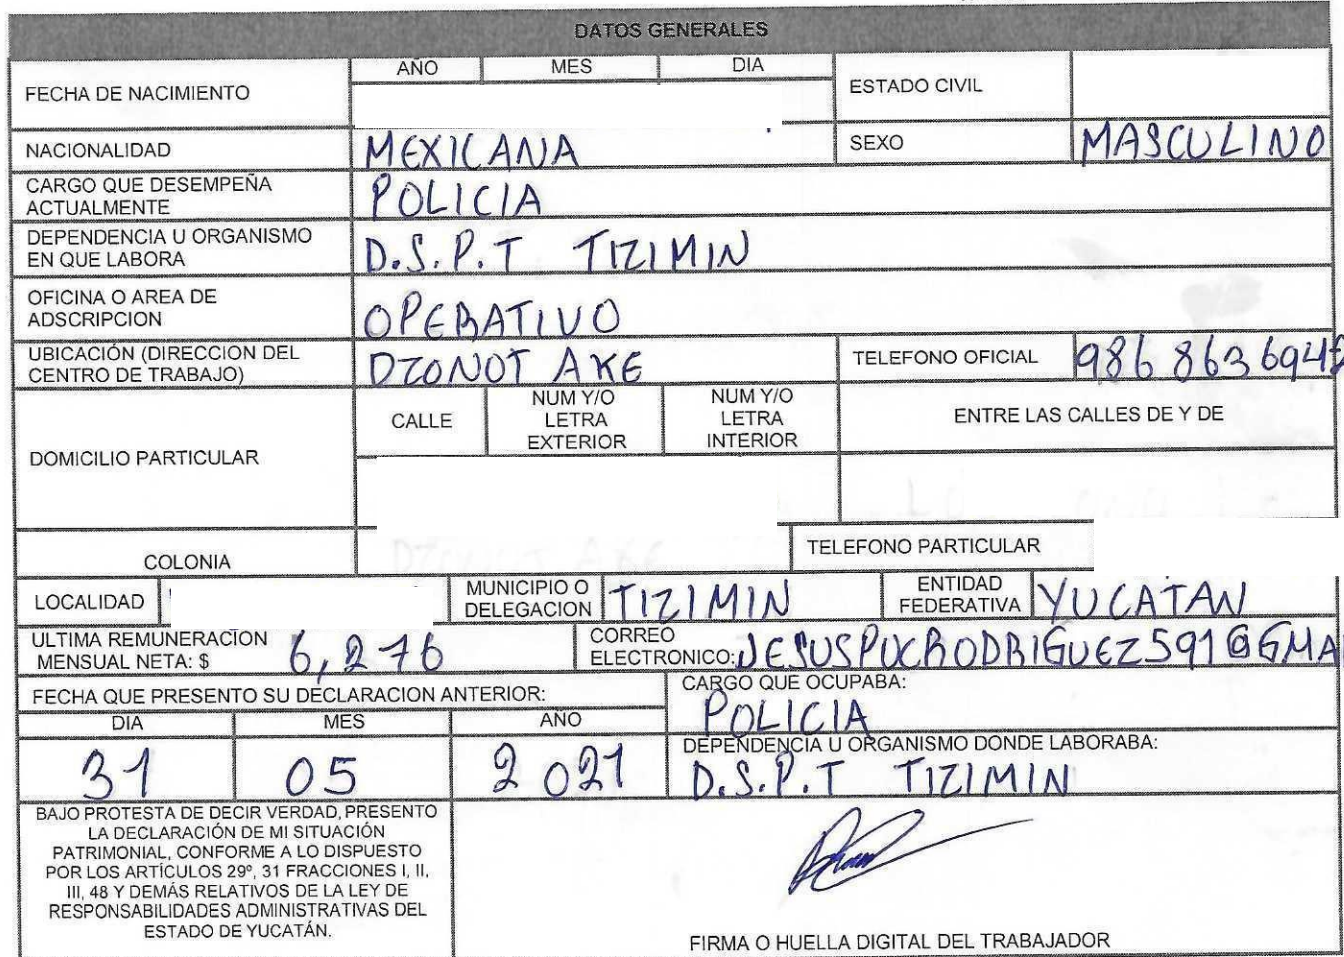 DATOS GENERALES
FECHA DE NACIMIENTO
AÑO MES DIA
ESTADO CIVIL
NACIONALIDAD MEXICANA SEXO MASCULINO
CARGO QUE DESEMPEÑA
ACTUALMENTE
POLICIA
DEPENDENCIA U ORGANISMO
EN QUE LABORA
D.S.P.T TIZIMIN
OFICINA O AREA DE
ADSCRIPCION
OPERATIVO
UBICACIÓN (DIRECCION DEL
CENTRO DE TRABAJO)
DZONOT AKE
TELEFONO OFICIAL 986 863 6942
DOMICILIO PARTICULAR
CALLE
NUM Y/O
LETRA
EXTERIOR
NUM Y/O
LETRA
INTERIOR
ENTRE LAS CALLES DE Y DE
COLONIA
DZONOT AKE
TELEFONO PARTICULAR
LOCALIDAD
MUNICIPIO O
DELEGACION
TIZIMIN
ENTIDAD
FEDERATIVA
YUCATAN
ULTIMA REMUNERACION
MENSUAL NETA: $ 6,276
CORREO
ELECTRONICO: JESUSPUCRODRIGUEZ591@GMA
FECHA QUE PRESENTO SU DECLARACION ANTERIOR:
DIA MES AÑO
31 05 2021
CARGO QUE OCUPABA:
POLICIA
DEPENDENCIA U ORGANISMO DONDE LABORABA:
D.S.P.T TIZIMIN
BAJO PROTESTA DE DECIR VERDAD, PRESENTO
LA DECLARACIÓN DE MI SITUACIÓN
PATRIMONIAL, CONFORME A LO DISPUESTO
POR LOS ARTÍCULOS 29º, 31 FRACCIONES I, II,
III, 48 Y DEMÁS RELATIVOS DE LA LEY DE
RESPONSABILIDADES ADMINISTRATIVAS DEL
ESTADO DE YUCATÁN.
FIRMA O HUELLA DIGITAL DEL TRABAJADOR